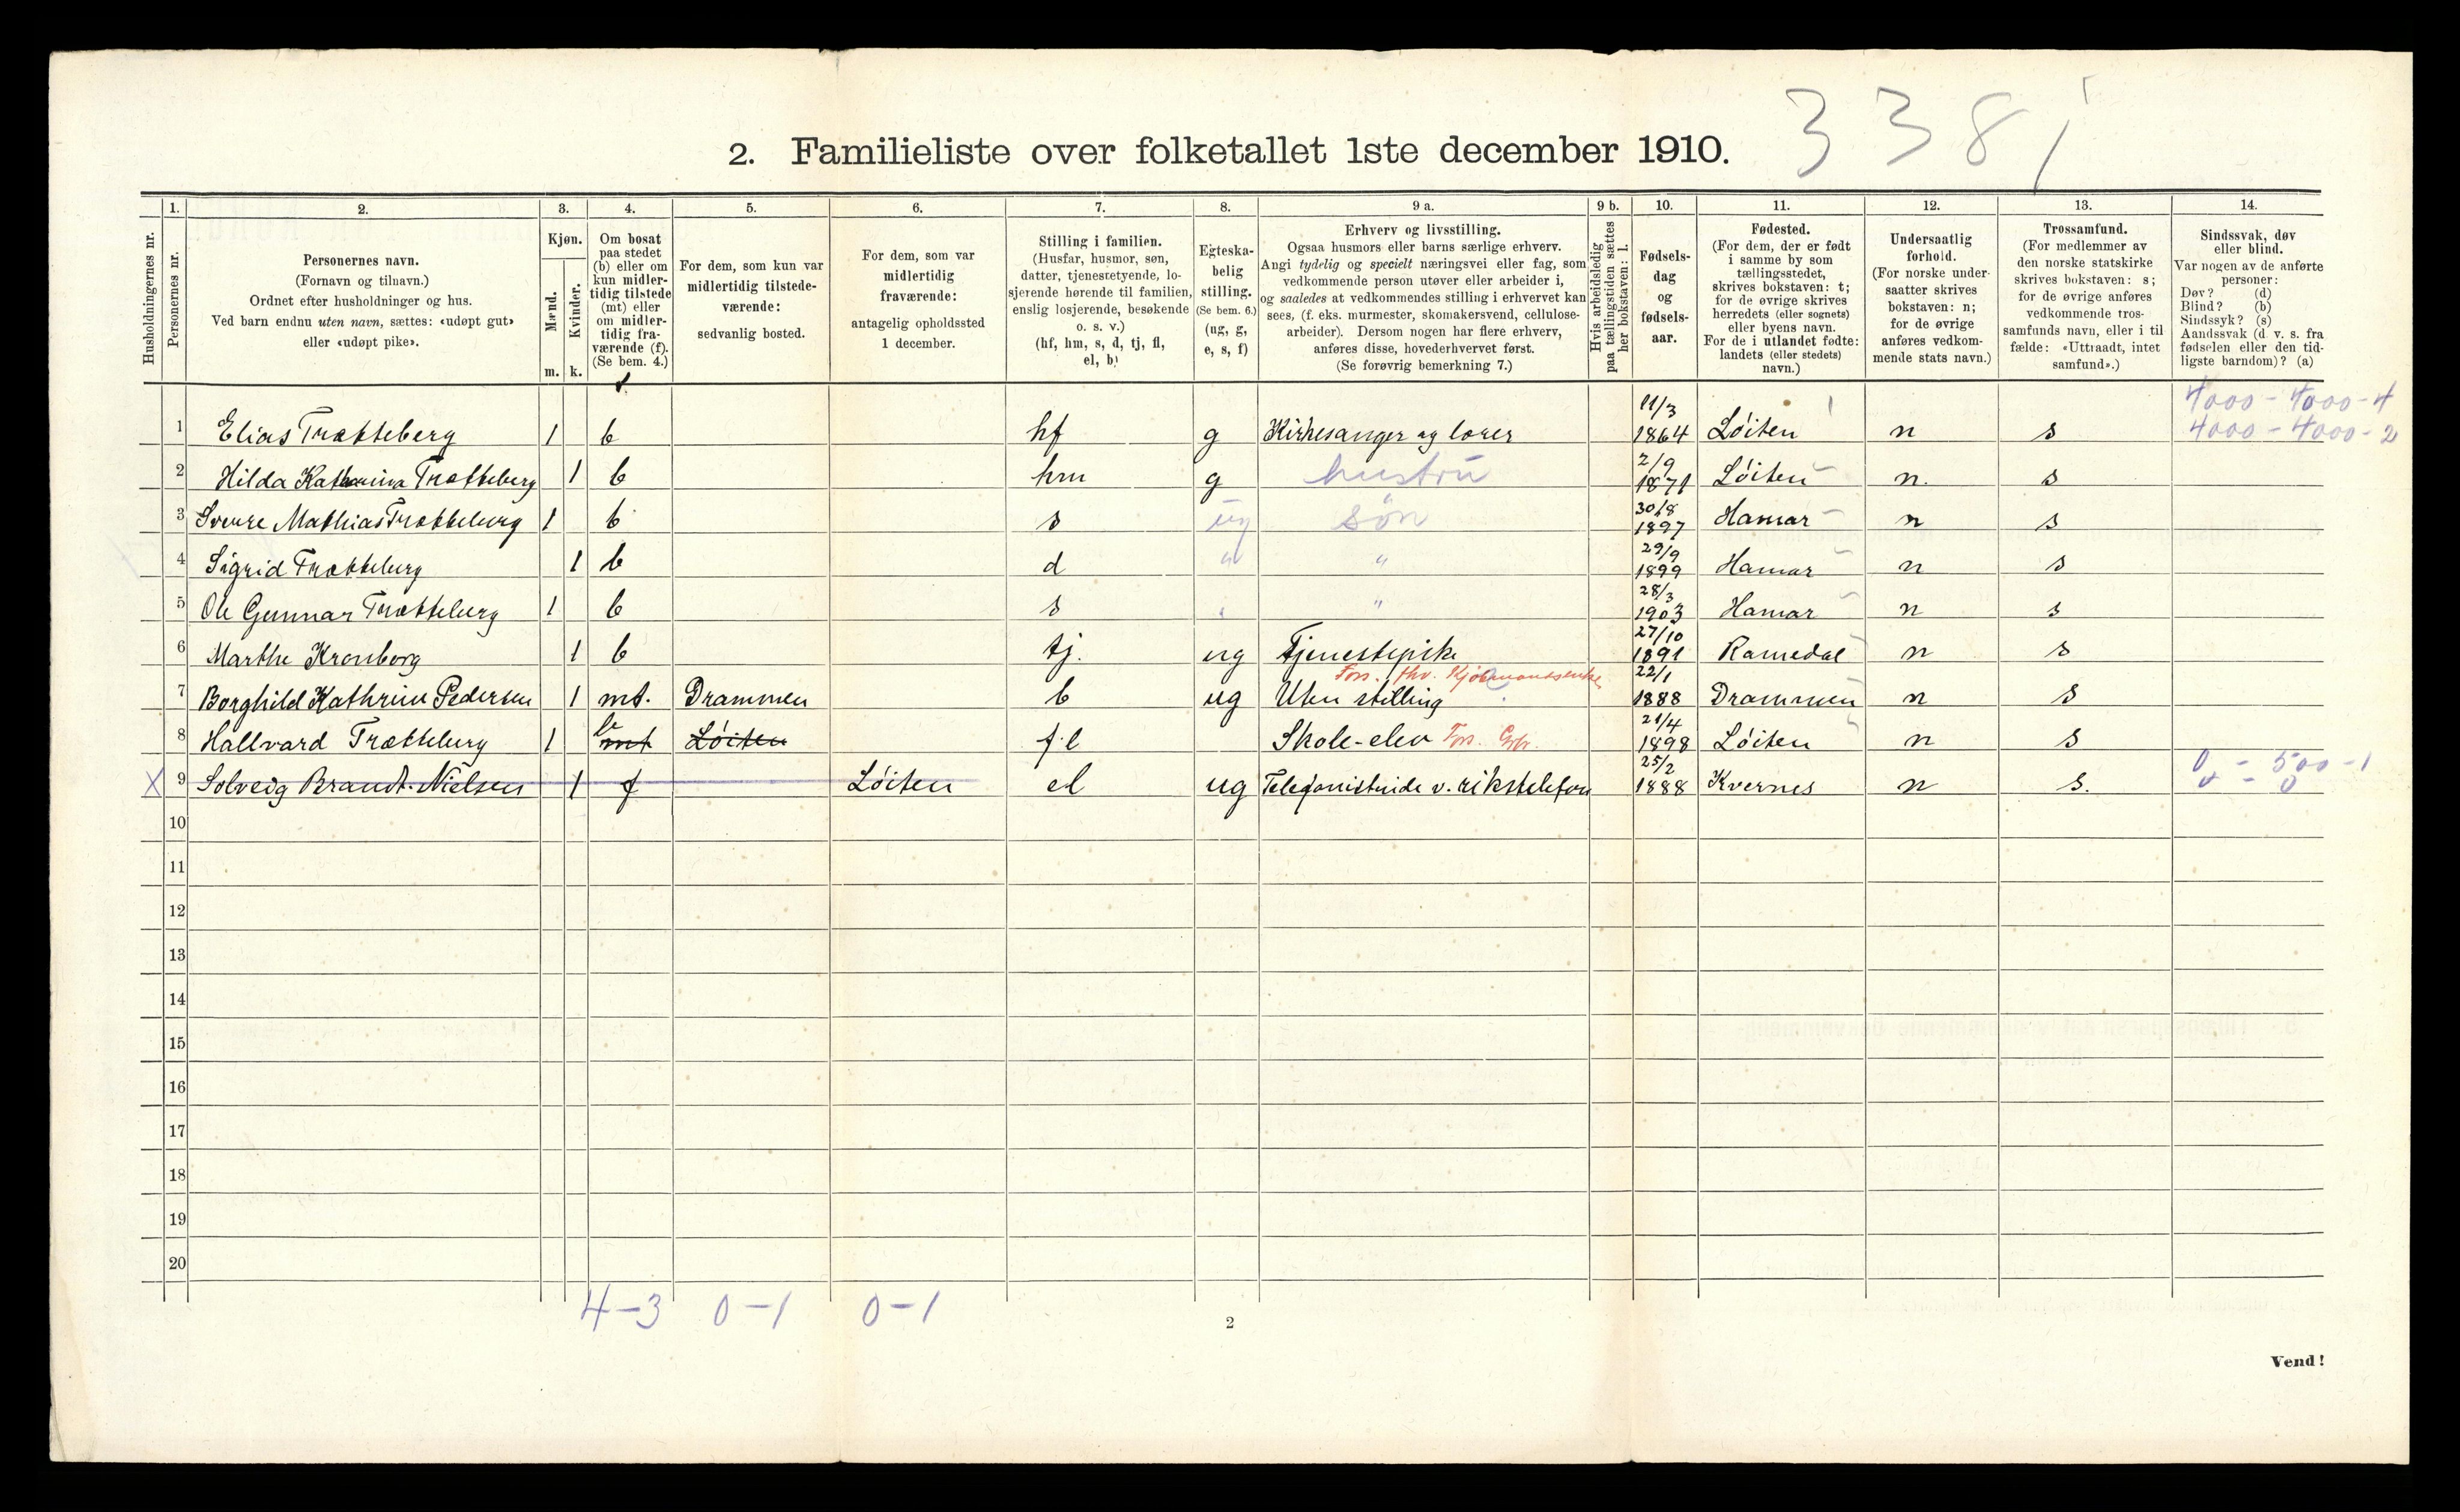 3 3 8 j
2. Familieliste over folketallet 1ste december 1910.
1. 2. 3. 4. 5. 6. 7. 8. 9 a. 9 b. 10. 11. 12. 13. 14.
Husholdningernes nr.
Personernes nr.
Personernes navn.
(Fornavn og tilnavn.)
Ordnet efter husholdninger og hus.
Ved barn endnu uten navn, sættes: «udøpt gut»
eller «udøpt pike».
Kjøn.
Mænd.
Kvinder.
m. k.
Om bosat
paa stedet
(b) eller om
kun midler-
tidig tilstede
(mt) eller
om midler-
tidig fra-
værende (f).
(Se bem. 4.)
For dem, som kun var
midlertidig tilstede-
værende:
sedvanlig bosted.
For dem, som var
midlertidig
fraværende:
antagelig opholdssted
1 december.
Stilling i familien.
(Husfar, husmor, søn,
datter, tjenestetyende, lo-
sjerende hørende til familien,
enslig losjerende, besøkende
o. s. v.)
(hf, hm, s, d, tj, fl,
el, b)
Egteska-
belig
stilling.
(Se bem. 6.)
(ug, g,
e, s, f)
Erhverv og livsstilling.
Ogsaa husmors eller barns særlige erhverv.
Angi tydelig og specielt næringsvei eller fag, som
vedkommende person utøver eller arbeider i,
og saaledes at vedkommendes stilling i erhvervet kan
sees, (f. eks. murmester, skomakersvend, cellulose-
arbeider). Dersom nogen har flere erhverv,
anføres disse, hovederhvervet først.
(Se forøvrig bemerkning 7.)
Hvis arbeidsledig
paa tællingstiden sættes
her bokstaven: l.
Fødsels-
dag
og
fødsels-
aar.
Fødested.
(For dem, der er født
i samme by som
tællingsstedet,
skrives bokstaven: t;
for de øvrige skrives
herredets (eller sognets)
eller byens navn.
For de i utlandet fødte:
landets (eller stedets)
navn.)
Undersaatlig
forhold.
(For norske under-
saatter skrives
bokstaven: n;
for de øvrige
anføres vedkom-
mende stats navn.)
Trossamfund.
(For medlemmer av
den norske statskirke
skrives bokstaven: s;
for de øvrige anføres
vedkommende tros-
samfunds navn, eller i til
fælde: «Uttraadt, intet
samfund».)
Sindssvak, døv
eller blind.
Var nogen av de anførte
personer:
Døv? (d)
Blind? (b)
Sindssyk? (s)
Aandssvak (d. v. s. fra
fødselen eller den tid-
ligste barndom)? (a)
4000 - 4000 - 4
1 Elias Trætteberg 1 b hf g Kirkesanger og lærer 11/3 1864 Løiten n s 4000 - 4000 - 2
2 Hilda Kathrina Trætteberg 1 b hm g hustru 2/9 1871 Løiten n. s
3 Sverre Mathias Trætteberg 1 b s ug søn 30/8 1897 Hamar n s
4 Sigrid Trætteberg 1 b d " " 29/9 1899 Hamar n s
5 Ole Gunnar Trætteberg 1 b s " " 28/3 1903 Hamar n s
6 Marthe Kronborg 1 b tj. ug Tjenestepike 27/10 1891 Romedal n s
Fors. fhv.
7 Borghild Kathrine Pedersen 1 mt. Drammen b ug Uten stilling 22/1 1888 Drammen n s
8 Hallvard Trætteberg 1 b mt Løiten f.l Skole-elev Fors. Gbr. 21/4 1898 Løiten n s
X 9 Solveig Brandt-Nielsen 1 f Løiten el ug Telefonistinde v. rikstelefon 25/2 1888 Kvernes n s. 0 - 500 - 1
0 - 0
10
11
12
13
14
15
16
17
18
19
20
4 - 3 0 - 1 0 - 1
2
Vend!